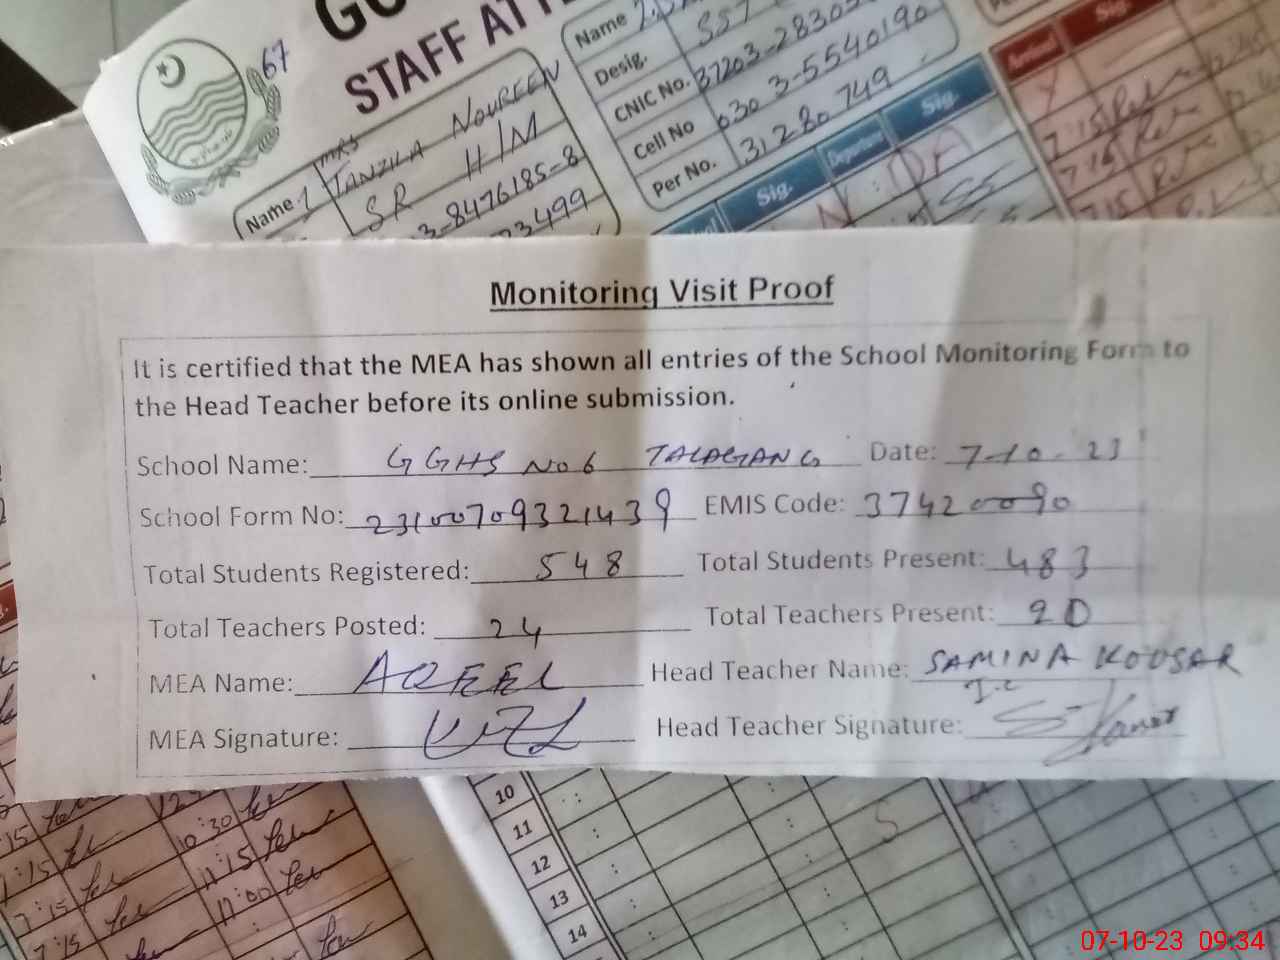 67
STAFF
Name 1 MRS TANZILA NOUREEN
SR H/M
3-8476185-8
23499
Name
Desig. SST
CNIC No. 37203-28305
Cell No 0303-5540190
Per No. 31280749
Sig.
Departure
Sig.
Arrival
Sig.
7:15
7:15
7:15
Monitoring Visit Proof
It is certified that the MEA has shown all entries of the School Monitoring Form to
the Head Teacher before its online submission.
School Name: GGHS No 6 TALAGANG Date: 7-10-23
School Form No: 23100709321439 EMIS Code: 37420090
Total Students Registered: 548 Total Students Present: 483
Total Teachers Posted: 24 Total Teachers Present: 20
MEA Name: AQEEL Head Teacher Name: SAMINA KOUSAR
I.C
MEA Signature: Head Teacher Signature:
10
11
12
13
14
10:30
7:15 11:15
7:15 11:00
7:15
07-10-23 09:34